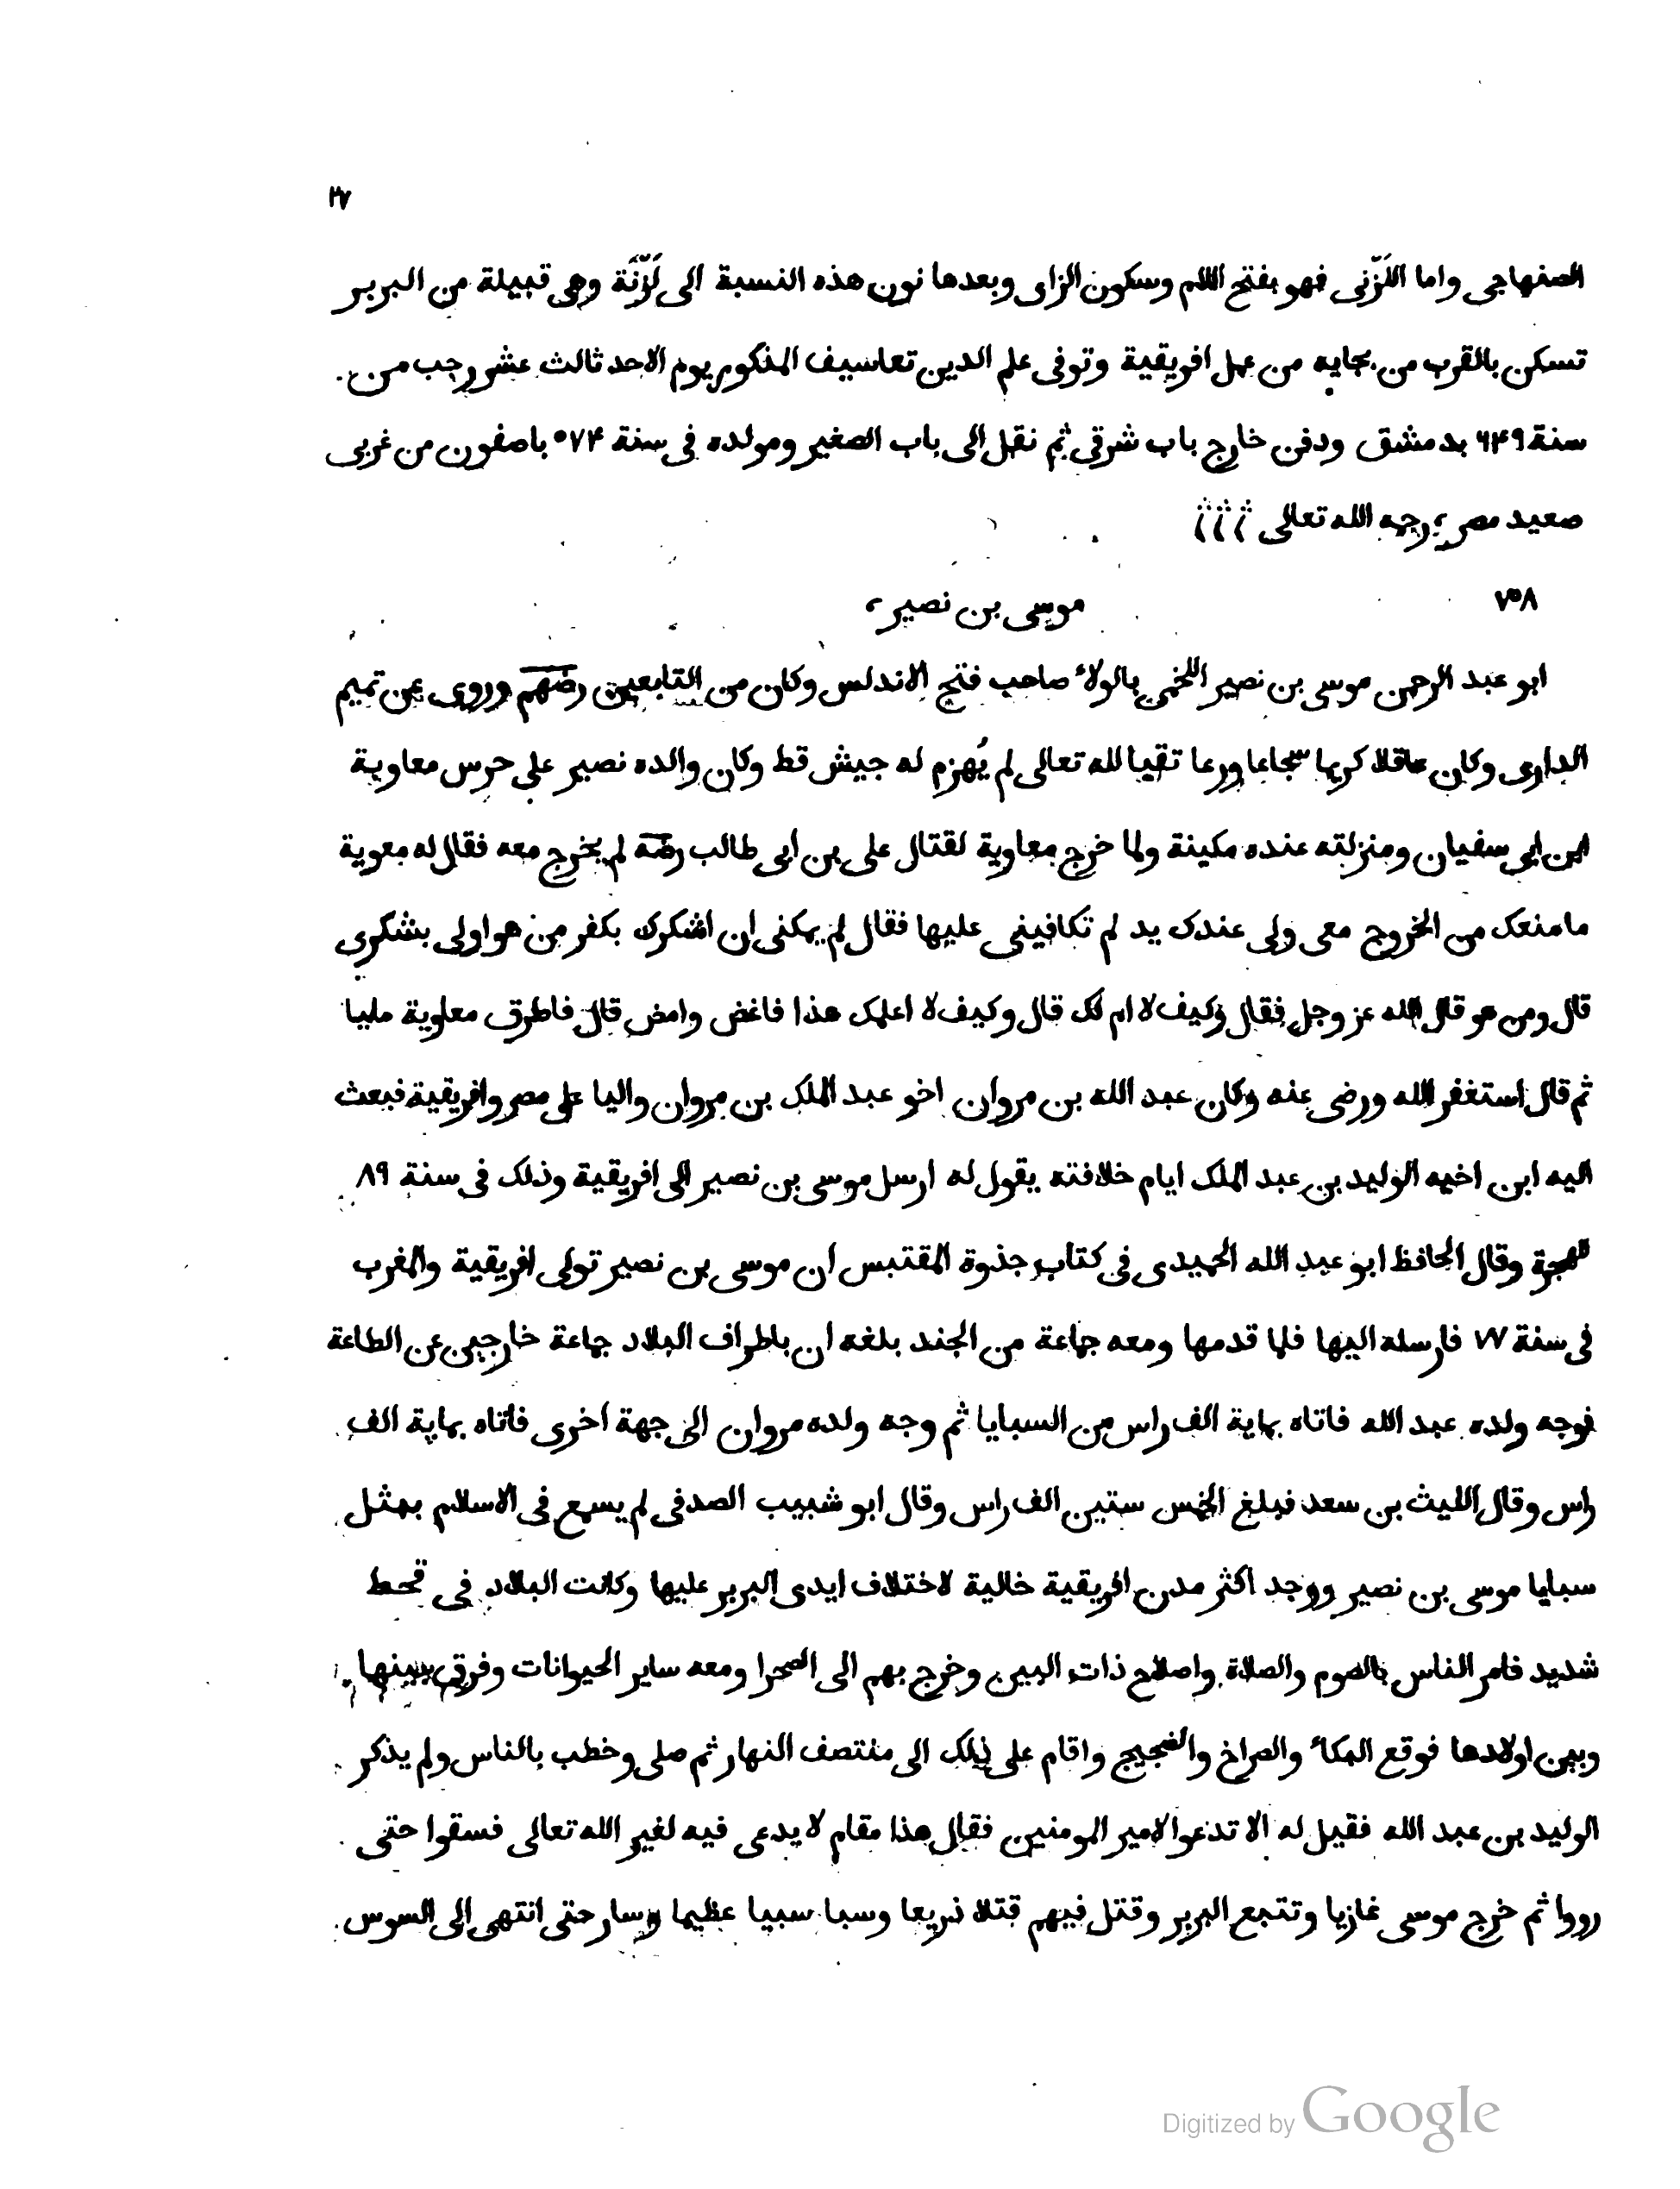 ٣٧
الصنهاجى واما اللَزْنى فهو بفتح اللام وسكون الزاى وبعدها نون هذه النسبة الى لَزْنَة وهى قبيلة من البربر
تسكن بالقرب من بجايه من عمل افريقية وتوفى علم الدين تعاسيف المذكور يوم الاحد ثالث عشر رجب من
سنة ٦٤٩ بدمشق ودفن خارج باب شرقى ثم نقل الى باب الصغير ومولده فى سنة ٥٧٤ باصفون من غربى
صعيد مصر، رحمه الله تعالى
٧٥٨ موسى بن نصير،
ابو عبد الرحمن موسى بن نصير اللخمى بالولاء صاحب فتح الاندلس وكان من التابعين رضهم وروى عن تميم
الدارى وكان عاقلا كريما شجاعا ورعا تقيا لله تعالى لم يُهزم له جيش قط وكان والده نصير على حرس معاوية
ابن ابى سفيان ومنزلته عنده مكينة ولما خرج معاوية لقتال على بن ابى طالب رضه لم يخرج معه فقال له معوية
ما منعك من الخروج معى ولى عندك يد لم تكافينى عليها فقال لم يمكنى ان اشكرك بكفر من هو اولى بشكرى
قال ومن هو قال الله عز وجل فقال وكيف لا ام لك قال وكيف لا اعلمك هذا فاغض وامض قال فاطرق معاوية مليا
ثم قال استغفر الله ورضى عنه وكان عبد الله بن مروان اخو عبد الملك بن مروان واليا على مصر وافريقية فبعث
اليه ابن اخيه الوليد بن عبد الملك ايام خلافته يقول له ارسل موسى بن نصير الى افريقية وذلك فى سنة ٨٩
للهجرة وقال الحافظ ابو عبد الله الحميدى فى كتاب جذوة المقتبس ان موسى بن نصير تولى افريقية والمغرب
فى سنة ٧٧ فارسله اليها فلما قدمها ومعه جماعة من الجند بلغه ان باطراف البلاد جماعة خارجين عن الطاعة
فوجه ولده عبد الله فاتاه بماية الف راس من السبايا ثم وجه ولده مروان الى جهة اخرى فاتاه بماية الف
راس وقال الليث بن سعد فبلغ الخمس ستين الف راس وقال ابو شبيب الصدفى لم يسمع فى الاسلام بمثل
سبايا موسى بن نصير ووجد اكثر مدن افريقية خالية لاختلاف ايدى البربر عليها وكانت البلاد فى قحط
شديد فامر الناس بالصوم والصلاة واصلاح ذات البين وخرج بهم الى الصحرا ومعه ساير الحيوانات وفرق بينها
وبين اولادها فوقع البكاء والصراخ والضجيج واقام على ذلك الى منتصف النهار ثم صلى وخطب بالناس ولم يذكر
الوليد بن عبد الله فقيل له الا تدعوا لامير المومنين فقال هذا مقام لا يدعى فيه لغير الله تعالى فسقوا حتى
رووا ثم خرج موسى غازيا وتتبع البربر وقتل فيهم قتلا ذريعا وسبا سبيا عظيما وسار حتى انتهى الى السوس
Digitized by Google